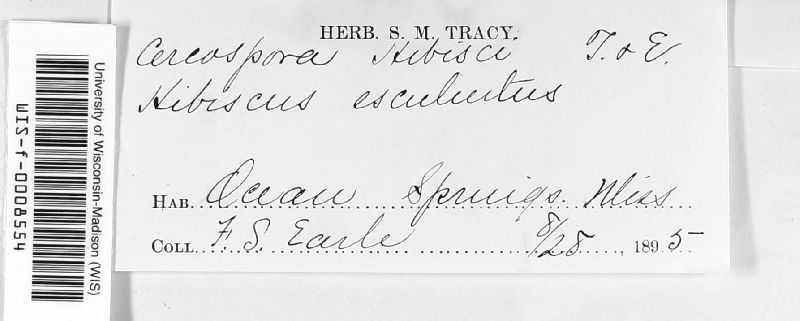 HERB. S. M. TRACY.
Cercospora Hibisci T. & E.
Hibiscus esculentus
HAB. Ocean Springs. Miss
COLL. F. S. Earle 8/28, 1895
University of Wisconsin-Madison (WIS)
WIS-f-0008554